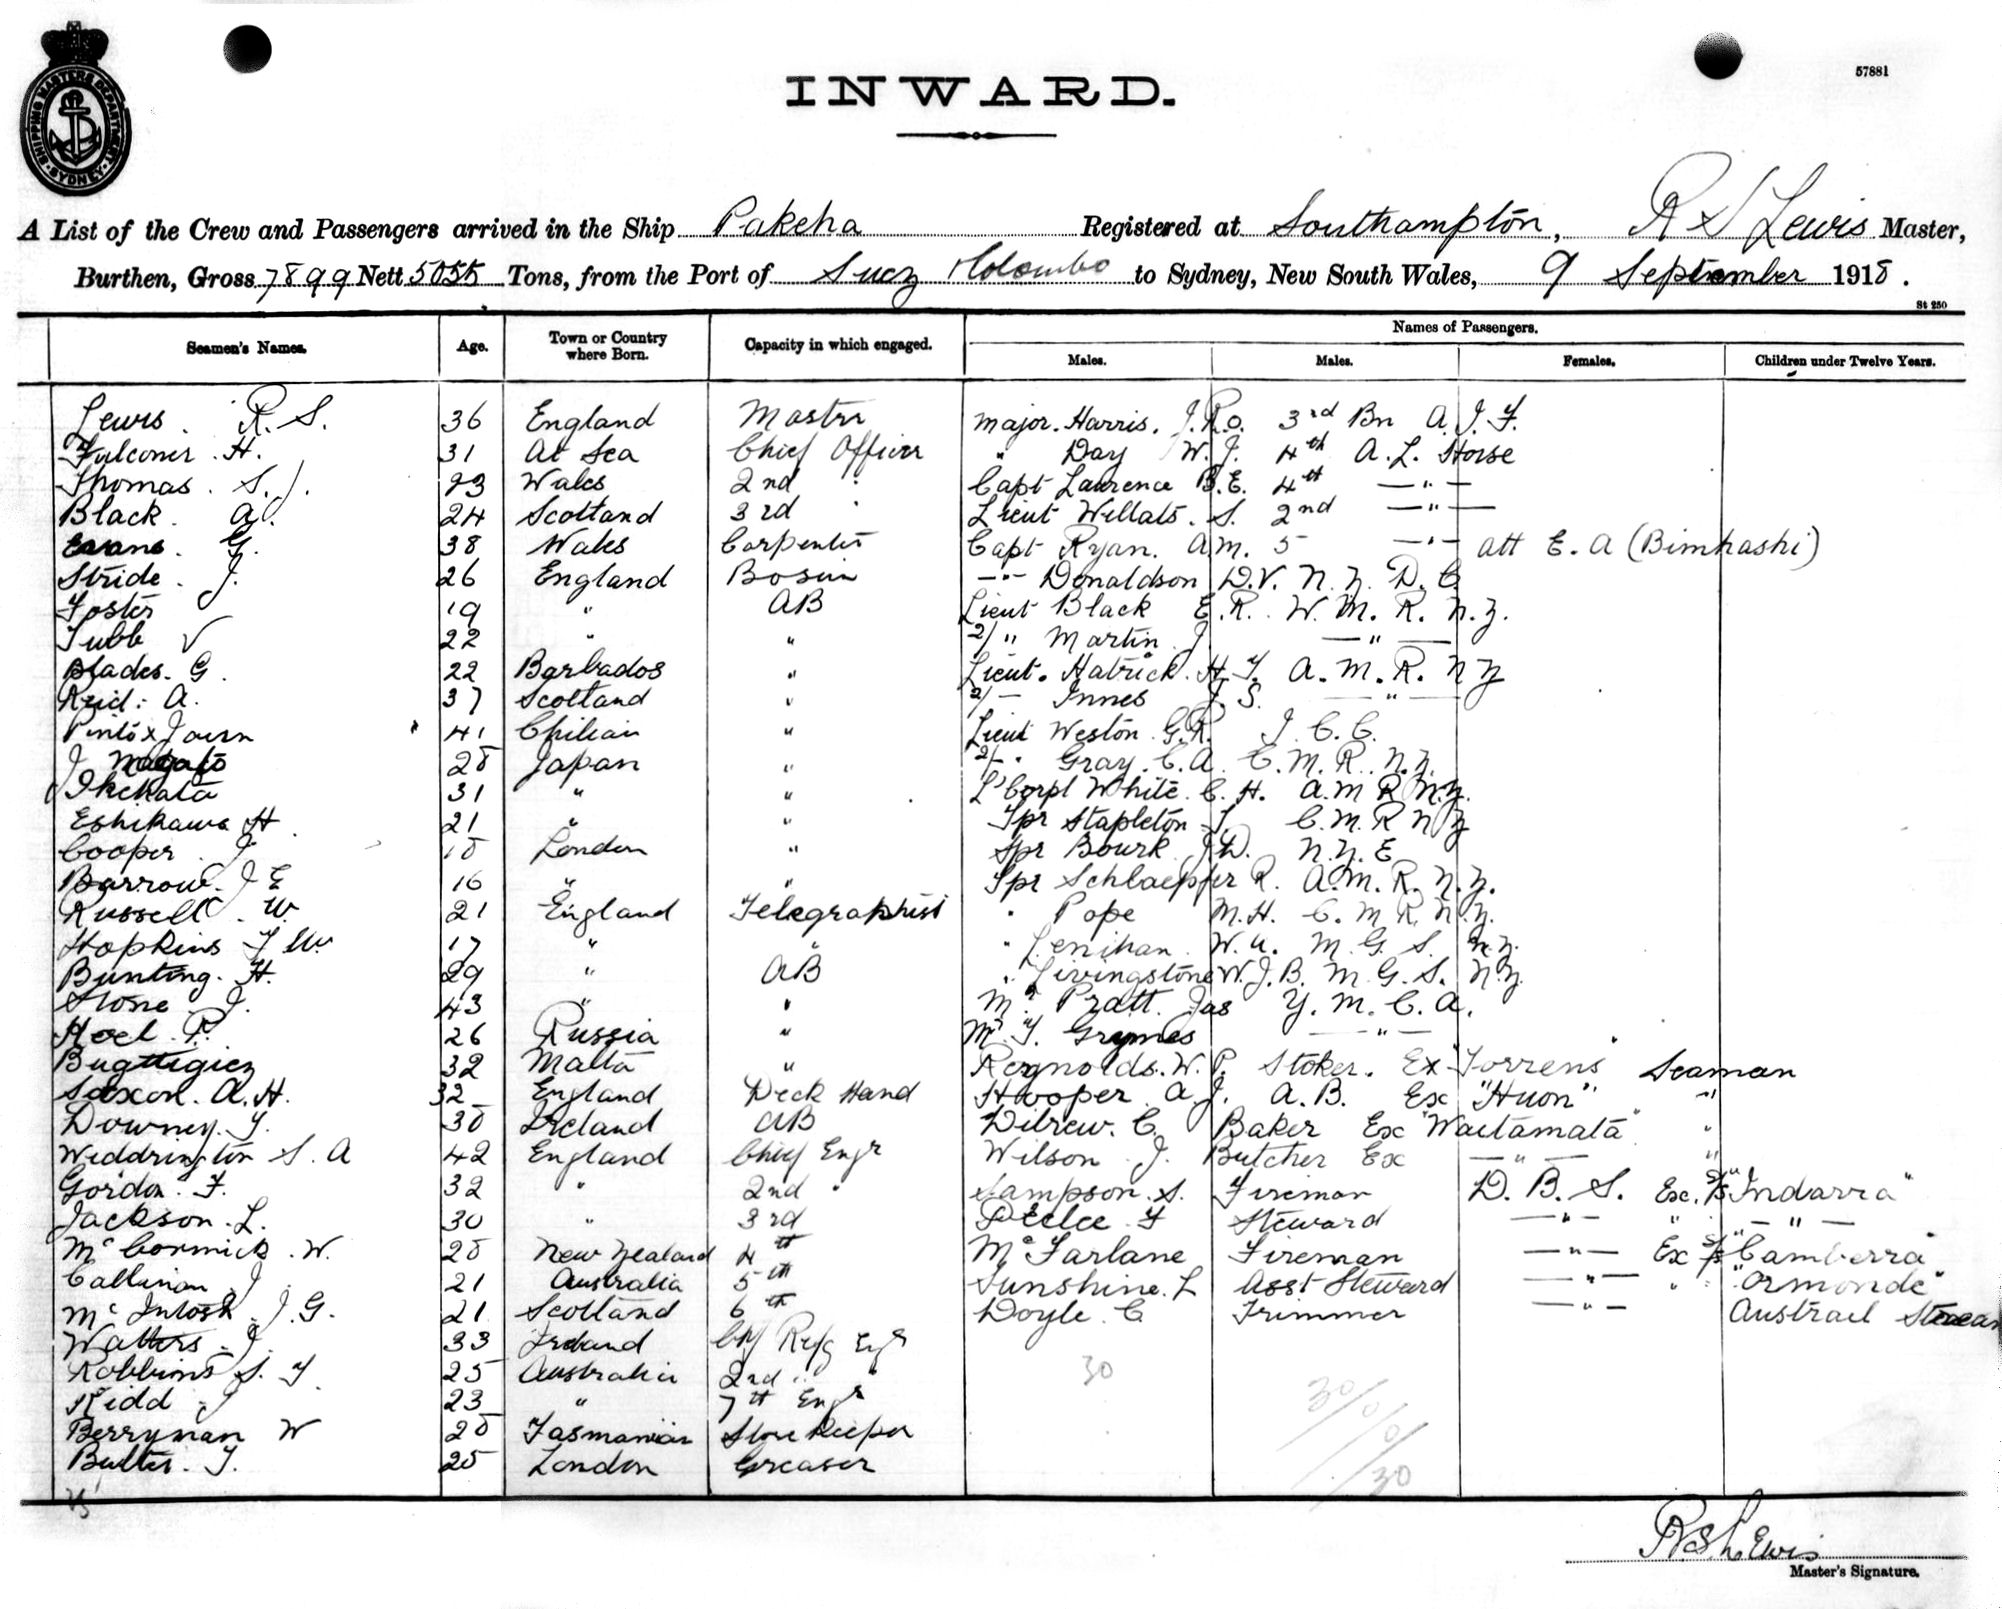 SHIPPING MASTERS DEPARTMENT
SYDNEY
57881
INWARD.
A List of the Crew and Passengers arrived in the Ship Pakeha Registered at Southampton, R S Lewis Master,
Burthen, Gross 7899 Nett 5055 Tons, from the Port of Suez Colombo to Sydney, New South Wales, 9 September 1918.
St 250
Seamen's Names. Age. Town or Country where Born. Capacity in which engaged. Names of Passengers.
Males. Males. Females. Children under Twelve Years.
Lewis. R. S. 36 England Master Major. Harris. J.R.O. 3rd Bn A. I. F.
Falconer. H. 31 At Sea Chief Officer " Day W. J. 4th A. L. Horse
Thomas. S. J. 23 Wales 2nd " Capt Laurence B. E. 4th — " —
Black. A. 24 Scotland 3rd " Lieut Willats. S. 2nd — " —
Evans. G. 38 Wales Carpenter Capt Ryan. A.M. 5 — " — att E. A (Bimkashi)
Stride. J. 26 England Bosun — " — Donaldson D.V. N. Z. D. C
Foster 19 " AB Lieut Black E. R. W. M. R. N. Z.
Tubb V 22 " " 2/ " Martin J — " —
Blades. G. 22 Barbados " Lieut. Hatrick. H. F. A. M. R. N Z
Reid. A. 37 Scotland " 2/ — Innes J. S. — " —
Pinto x Juan 41 Chilian " Lieut Weston. G.R. I. C. C.
J 28 Japan " 2/ — " Gray. C. A. C. M. R. N. Z.
Ikekata 31 " " L'Corpl White. C. H. A. M R N. Z.
Eshikawa H 21 " " Tpr Stapleton C. M. R N Z
Cooper. J 18 London " Spr Bourk J D. N. Z. E
Barrow. J E 16 " " Tpr Schlaepfer R. A. M. R. N. Z.
Russell. W. 21 England Telegraphist " Pope M. H. C. M R. N. Z.
Hopkins F W 17 " " " Lenihan. W. A. M. G. S. N. Z.
Bunting. H. 29 " AB " Livingstone W. J. B. M. G. S. N. Z.
Stone. J. 43 " " Mr Pratt. Jas Y. M. C. A.
Hoel. P. 26 Russia " Mr F. Grymes — " —
32 Malta " Reynolds. W. P. Stoker. Ex "Torrens" Seaman
Saxon. A. H. 32 England Deck Hand Hooper. A. J. A. B. Ex "Huon" "
Downey. T. 30 Ireland AB Dibrew. C. Baker Ex "Waitamata" "
Widdrington S. A 42 England Chief Engr Wilson J. Butcher Ex — " — "
Gordon. F. 32 " 2nd " Sampson. S. Fireman D. B. S. Exc. S/S "Indarra"
Jackson. L. 30 " 3rd F Steward — " — " — " —
McCormick. W. 28 New Zealand 4th McFarlane Fireman — " — Ex S/S "Camberra"
Callinan J 21 Australia 5th Sunshine. L Asst Steward — " — " "Ormonde"
McIntosh. J. G. 21 Scotland 6th Doyle. C Trimmer — " — Austrael
Watters. J. 33 Ireland Chf Refg Engr
Robbins S. F. 25 Australia 2nd " " 30
Kidd J 23 " 7th Engr 30/0/0/30
Berryman W 28 Tasmanian Store Keeper
Butter. T. 25 London Greaser
R. S. Lewis
Master's Signature.